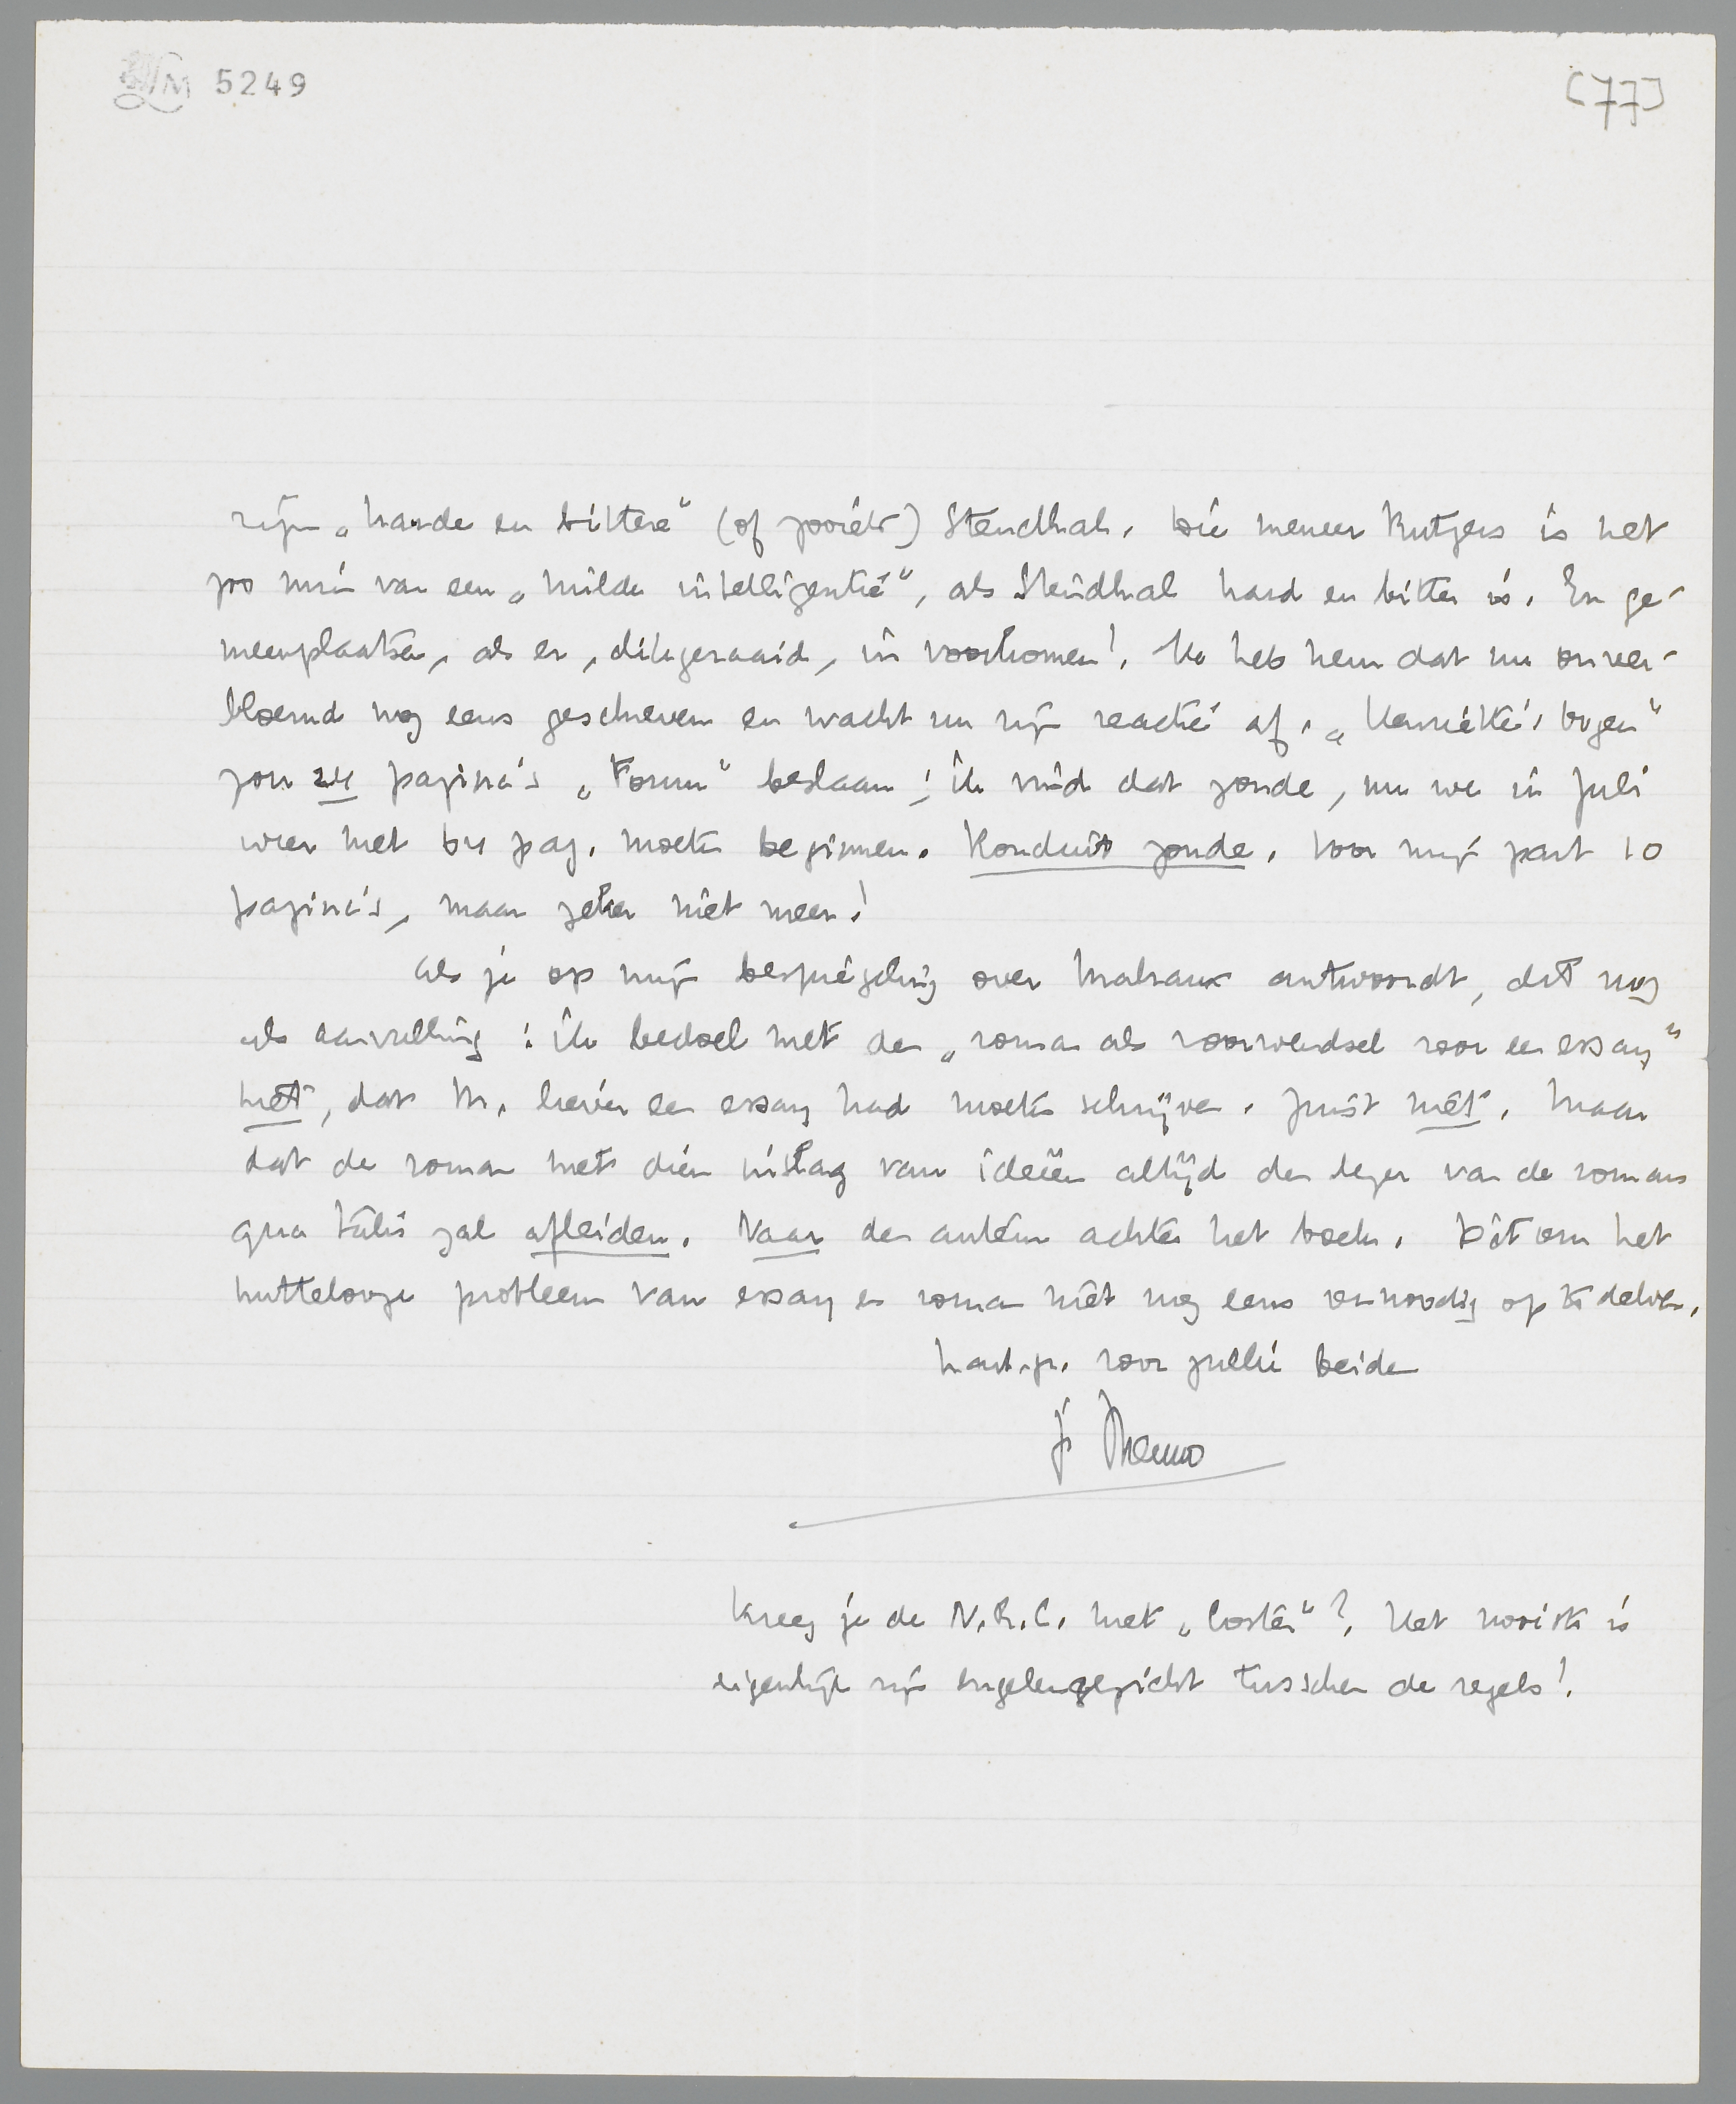 LM 5249
[77]
zijn „harde en bittere” (of zooiets) Stendhal. Die meneer Rutgers is net
zoo min van een „milde intelligentie”, als Stendhal hard en bitter is. En ge-
meenplaatsen, als er, dik gezaaid, in voorkomen! Ik heb hem dat nu onver-
bloemd nog eens geschreven en wacht nu zijn reactie af. „ oogen”
zou 24 pagina's „Forum” beslaan; ik vind dat zonde, nu we in Juli
weer met 64 pag. moeten beginnen. Konduit zonde. Voor mijn part 10
pagina's, maar zeker niet meer!
Als je op mijn bespiegeling over Malraux antwoordt, dit nog
als aanvulling: ik bedoel met den „roman als voorwendsel voor een essay”
niet, dat M. liever een essay had moeten schrijven. Juist niet. Maar
dat de roman met dien inslag van ideeën altijd den lezer van de romans
qua talis zal afleiden. Naar den auteur achter het boek. Dit om het
nuttelooze probleem van essay en roman niet nog eens onnoodig op te delven.
hart. gr. voor jullie beiden
je Menno
Kreeg je de N.R.C. met „Coster”? Het mooiste is
eigenlijk zijn engelengezicht tusschen de regels!